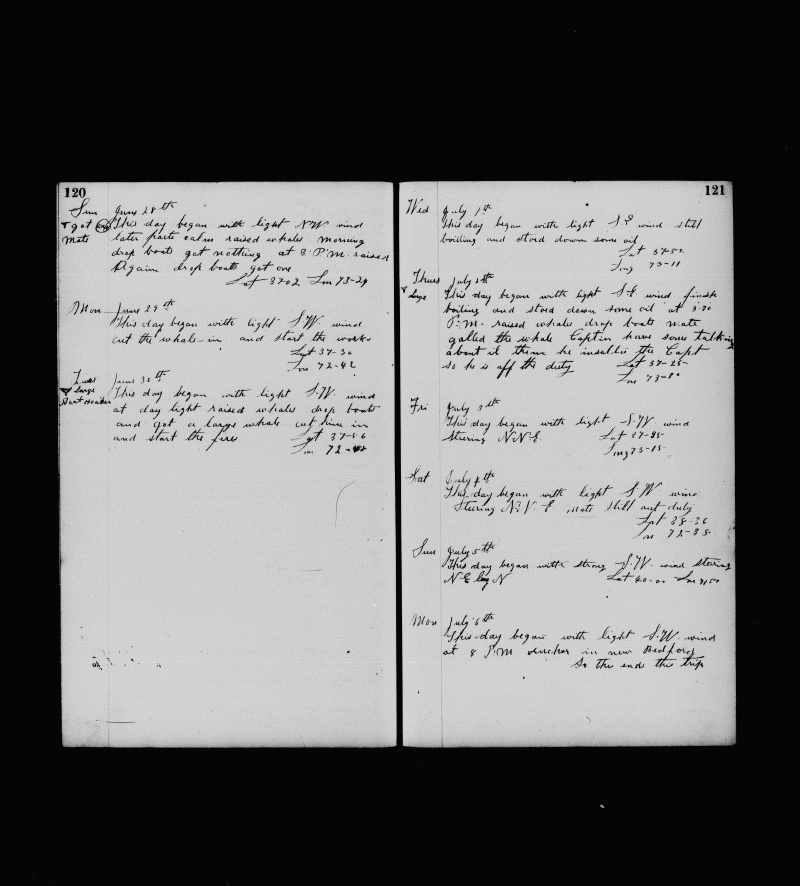 120
Sun June 28th
got one This day began with light N.W. wind
Mate later parte calm raised whales morning
drop boats got nothing at 3. P.M. raised
Again drop boats got one
Lat 37-02 Lon 73-29
Mon June 29th
This day began with light S.W. wind
cut the whale in and start the works
Lat 37-30
Lon 72-42
Tues June 30th
Large This day began with light S.W. wind
Boat Header at day light raised whales drop boats
and got a large whale cut him in
and start the fires Lat 37-56
Lon 72-42
121
Wed July 1st
This day began with light S.E wind still
boiling and stord down som oil
Lat 37-52
Long 73-11
Thurs July 2th
Large This day began with light S.E wind finish
boiling and stord down som oil at 3-30
P.M. raised whales drop boats mate
galled the whale Captin have some talking
about it theme he insalltes the Capt
so he is off the duty Lat 37-25
Lon 73-10
Fri July 3th
This day began with light S.W. wind
Stering N.N.E. Lat 37-25
Long 73-15
Sat July 4th
This day began with light S.W wind
Stering N.N.E mate still out duty
Lat 38-36
Lon 72-35
Sun July 5th
This day began with strong S.W. wind stering
N.E by N Lat 40-00 Lon 71-50
Mon July 6th
This day began with light S.W. wind
at 8 P.M ancher in new Bedford
So the end the trip